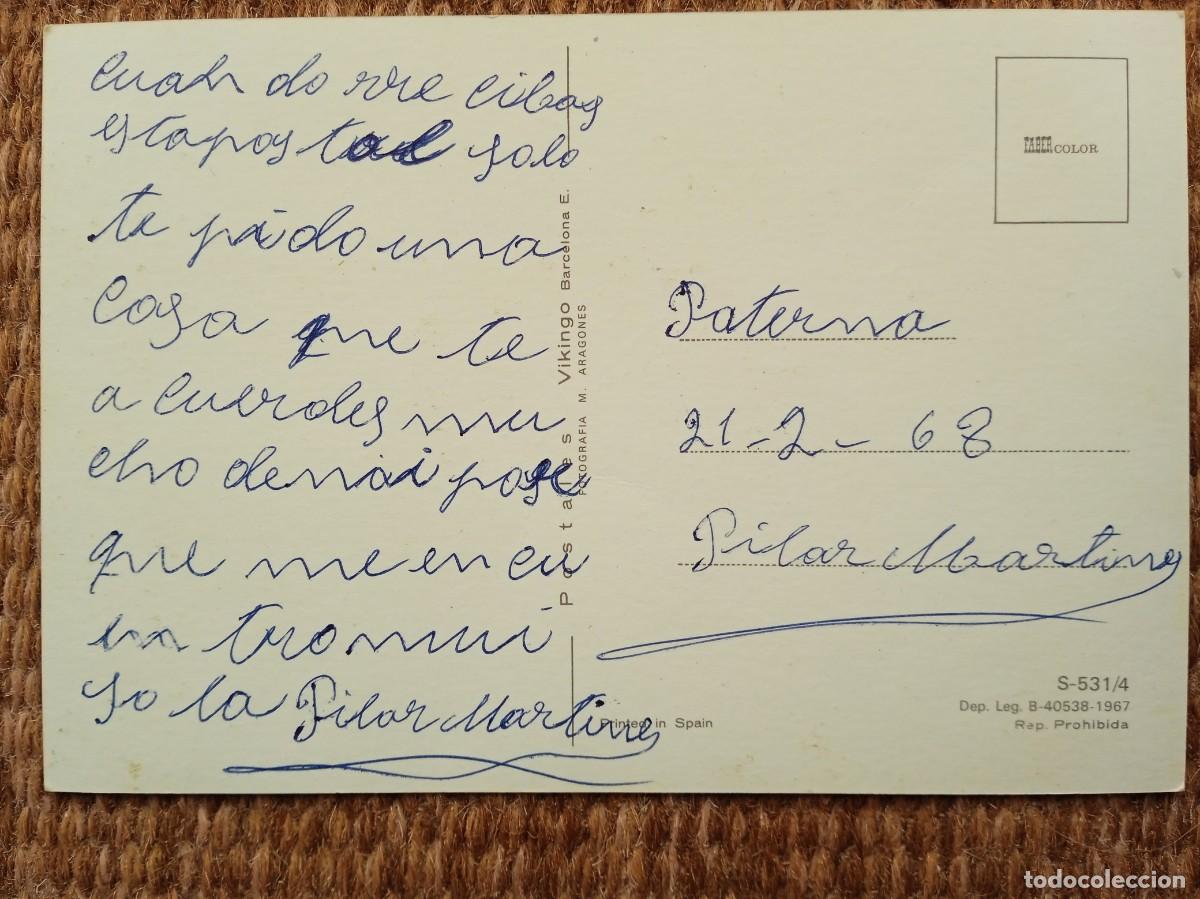 cuan do rre cibas
estapostal solo
te pido una
cosa que te
a cuerdes mu
cho demi porque
que me en cu
en tromui
so la Pilar Martines
Postales Vikingo Barcelona E.
FOTOGRAFIA M. ARAGONES
FABER COLOR
Paterna
21-2-68
Pilar Martines
Printed in Spain
S-531/4
Dep. Leg. B-40538-1967
Rep. Prohibida
todocoleccion